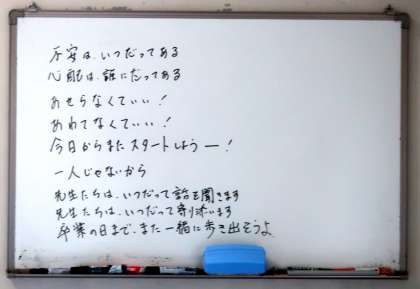 不安は、いつだってある
心配は、誰にだってある
あせらなくていい！
あわてなくていい！
今日からまたスタートしようー！
一人じゃないから
先生たちは、いつだって話を聞きます
先生たちは、いつだって寄り添います
卒業の日まで、また一緒に歩き出そうよ